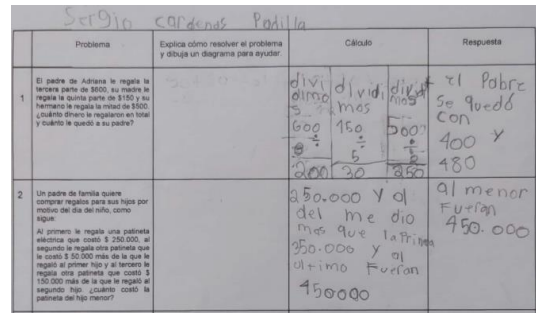 Sergio cardenas Padilla
Problema
Explica cómo resolver el problema
y dibuja un diagrama para ayudar.
Cálculo
Respuesta
1
El padre de Adriana le regala la
tercera parte de $600, su madre le
regala la quinta parte de $150 y su
hermano le regala la mitad de $500.
¿cuánto dinero le regalaron en total
y cuánto le quedó a su padre?
divi
dimos
600
÷
200
dividi
mos
150
÷
5
30
dividi
mos
500
÷
2
250
el Pabre
se quedó
con
400 y
480
2
Un padre de familia quiere
comprar regalos para sus hijos por
motivo del día del niño, como
sigue:
Al primero le regala una patineta
eléctrica que costó $ 250.000, al
segundo le regala otra patineta que
le costó $ 50.000 más de la que le
regaló al primer hijo y al tercero le
regala otra patineta que costó $
150.000 más de la que le regaló al
segundo hijo. ¿cuánto costó la
patineta del hijo menor?
250.000 y al
del me dio
mas que la
350.000 y al
ultimo Fueron
450000
al menor
Fueron
450.000